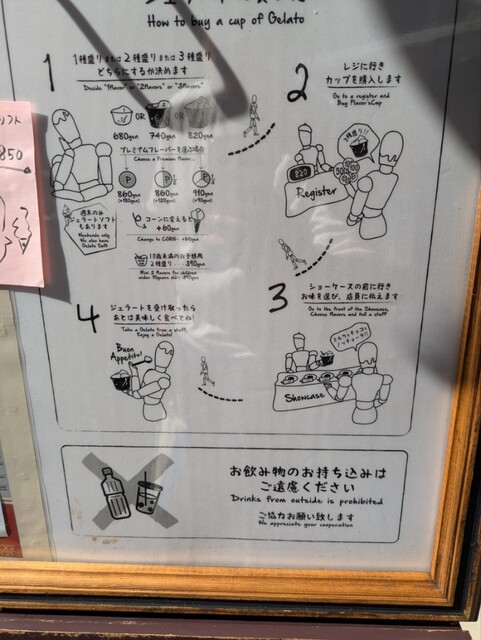 How to buy a cup of Gelato
1
1種盛りまたは2種盛りまたは3種盛り
どちらにするか決めます
Decide "1flavor" or "2flavors" or "3flavors"
OR
OR
680yen
740yen
820yen
プレミアムフレーバーを選ぶ場合
Choose a Premium flavor...
P
P
P
860yen
860yen
910yen
コーンに変えると
+60yen
Change to CORN +60yen
10歳未満のお子様用
2種盛り 390yen
週末のみ
ジェラートソフト
もあります
Weekends only
We also have
Gelato Soft
2
レジに行き
カップを購入します
Go to a register and
Buy Flavor'sCup
3種盛り!!
820
Register
3
ショーケースの前に行き
お味を選び、店員に伝えます
Go to the front of the Showcase,
Choose flavors and tell a staff
Showcase
4
ジェラートを受け取ったら
あとは美味しく食べてね!
Take a Gelato from a staff,
Enjoy a Gelato!
Buon
Appetito!
お飲み物のお持ち込みは
ご遠慮ください
Drinks from outside is prohibited
ご協力お願い致します
We appreciate your cooperation
ソフト
850